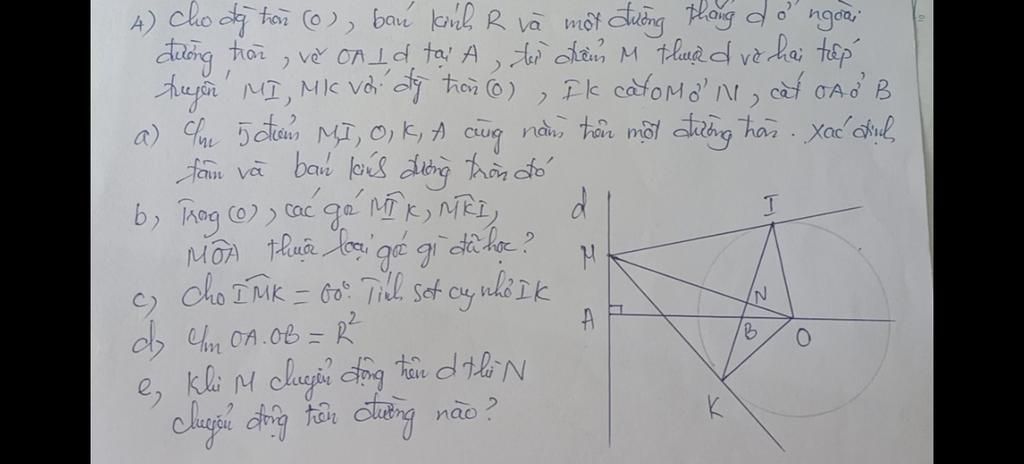 4) Cho đg tròn (O), bán kính R và một đường thẳng d ở ngoài
đường tròn, vẽ OA⊥d tại A, từ điểm M thuộc d vẽ hai tiếp
tuyến MI, MK với đg tròn (O), IK cắt OM ở N, cắt OA ở B
a) C/m 5 điểm M, I, O, K, A cùng nằm trên một đường tròn. Xác định
tâm và bán kính đường tròn đó
b, Trog (O), các góc MIK, MKI,
MOA thuộc loại góc gì đã học?
c, Cho IMK = 60°. Tính sđt cug nhỏ IK
d, C/m OA.OB = R²
e, Khi M chuyển động trên d thì N
chuyển động trên đường nào?
d
I
M
N
A
B
O
K